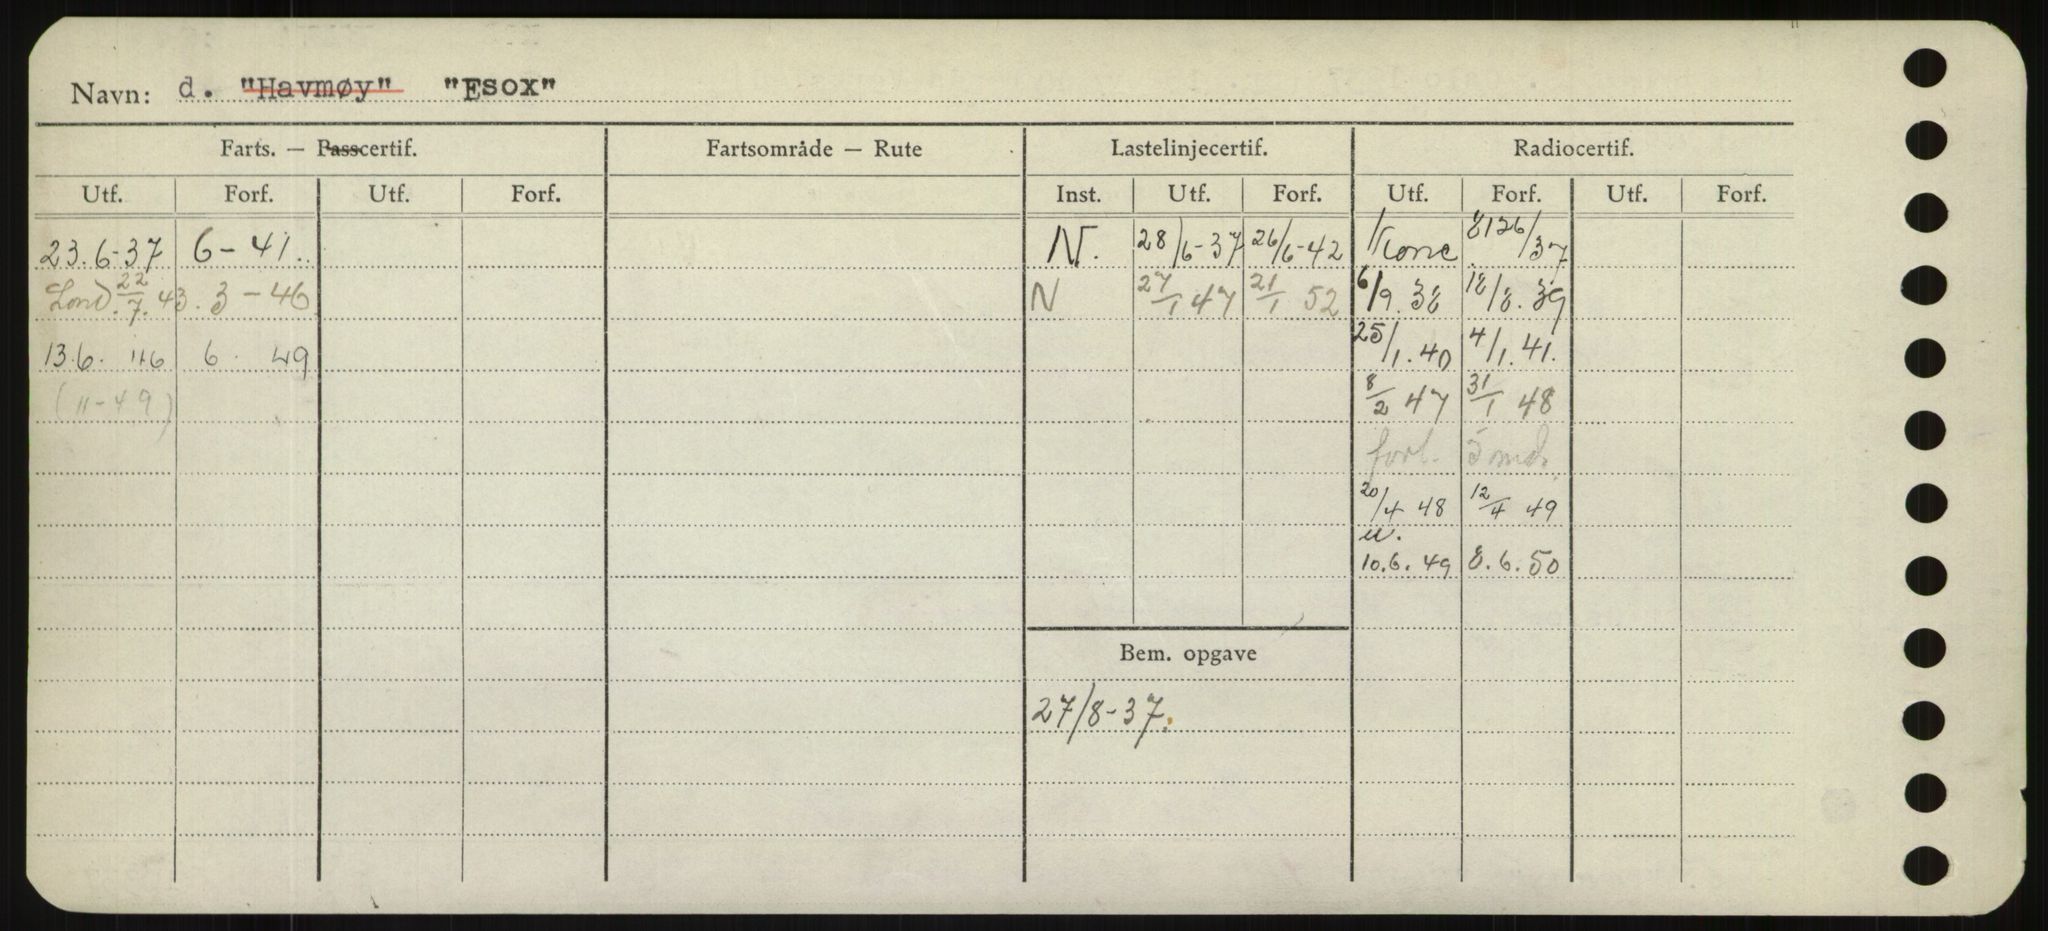 Navn: d. "Havmøy" "Esox"
Farts. — Passcertif. Fartsområde — Rute Lastelinjecertif. Radiocertif.
Utf. Forf. Utf. Forf. Inst. Utf. Forf. Utf. Forf. Utf. Forf.
23.6-37 6-41. N. 28/6-37 26/6-42 8126/37
Lond. 22/7.43. 3-46 N 27/1 47 21/1 52 6/9.38 18/8.39
13.6. 46 6. 49 25/1.40 4/1.41.
(11-49) 8/2 47 31/1 48
forl. 5 md.
20/4 48 12/4 49
u.
10.6.49 8.6.50
Bem. opgave
27/8-37.